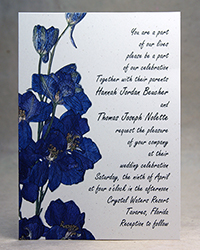 You are a part
of our lives
please be a part
of our celebration
Together with their parents
Hannah Jordan Beusher
and
Thomas Joseph Nolette
request the pleasure
of your company
at their
wedding celebration
Saturday, the ninth of April
at four o'clock in the afternoon
Crystal Waters Resort
Tavares, Florida
Reception to follow